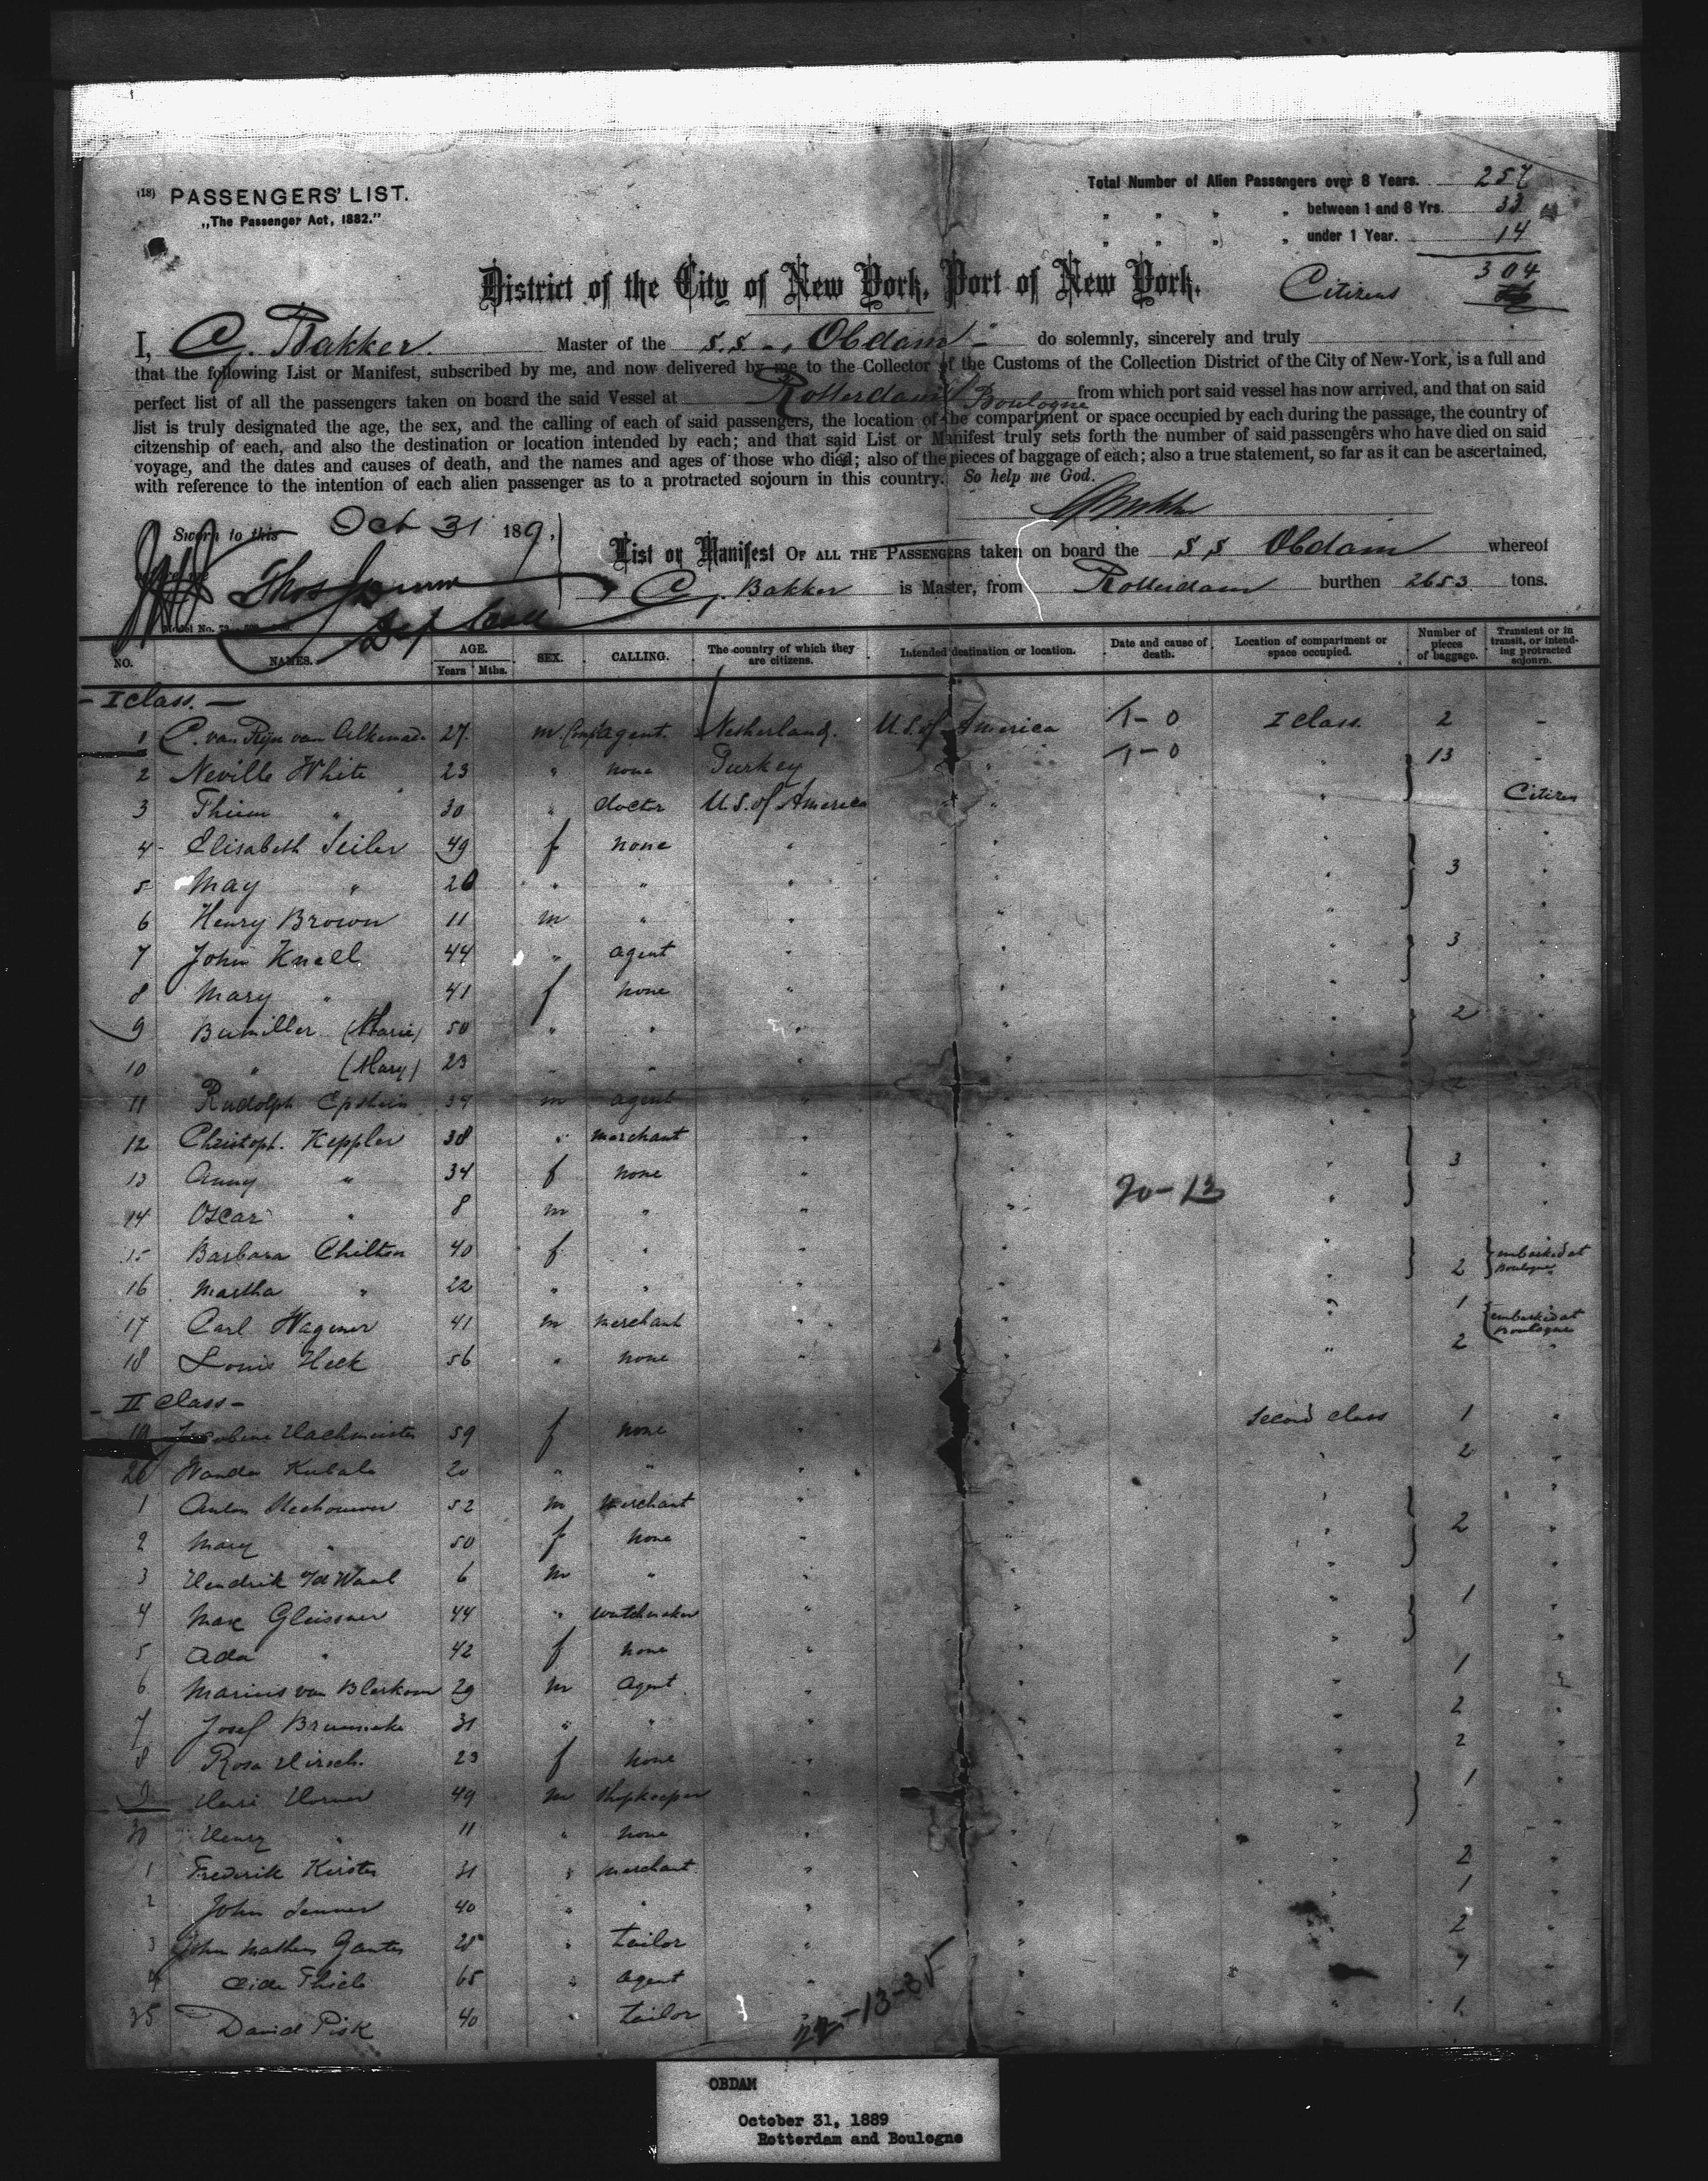 (18) PASSENGERS' LIST.
„The Passenger Act, 1882."
Total Number of Alien Passengers over 8 Years. 257
" " " " between 1 and 8 Yrs. 33
" " " " under 1 Year. 14
304
Citizens
District of the City of New York, Port of New York.
I, C. Bakker. Master of the S.S. „Obdam" do solemnly, sincerely and truly
that the following List or Manifest, subscribed by me, and now delivered by me to the Collector of the Customs of the Collection District of the City of New-York, is a full and
perfect list of all the passengers taken on board the said Vessel at Rotterdam / Boulogne from which port said vessel has now arrived, and that on said
list is truly designated the age, the sex, and the calling of each of said passengers, the location of the compartment or space occupied by each during the passage, the country of
citzenship of each, and also the destination or location intended by each; and that said List or Manifest truly sets forth the number of said passengers who have died on said
voyage, and the dates and causes of death, and the names and ages of those who died; also of the pieces of baggage of each; also a true statement, so far as it can be ascertained,
with reference to the intention of each alien passenger as to a protracted sojourn in this country. So help me God.
Sworn to this Oct 31 1889.
List or Manifest OF ALL THE PASSENGERS taken on board the S S Obdam whereof
C. Bakker is Master, from Rotterdam burthen 2653 tons.
Model No.
NO. NAMES. AGE. Years Mths. SEX. CALLING. The country of which they are citizens. Intended destination or location. Date and cause of death. Location of compartment or space occupied. Number of pieces of baggage. Transient or in transit, or intending protracted sojourn.
- I class. -
1 C. van Rijn van Alkemade 27 m. agent. Netherland. U.S. of America 1-0 I class. 2 -
2 Neville White 23 " none Turkey " 1-0 " 13 -
3 " 30 " doctor U.S. of America " " Citizen
4 Elisabeth Seiler 49 f none " " " "
5 May " 20 " " " " " 3 "
6 Henry Brown 11 m " " " " "
7 John Knell 44 " agent " " " 3 "
8 Mary " 41 f none " " " "
9 Bumiller (Marie) 50 " " " " " 2 "
10 " (Mary) 23 " " " " " "
11 Rudolph Epstein 34 m agent " " " 2 "
12 Christoph. Keppler 38 " merchant " " " "
13 Anny " 34 f none " " " 3 "
20-13
14 Oscar " 8 m " " " " "
15 Barbara Chilton 40 f " " " " 2 embarked at Boulogne
16 Martha " 22 " " " " "
17 Carl Wagener 41 m merchant " " " 1 embarked at Boulogne
18 Louis Heck 56 " none " " " 2 "
- II Class -
19 Hachmeister 59 f none " " Second class 1 "
20 Wanda Kubala 20 " " " " " 2 "
1 Anton 52 m merchant " " " "
2 Mary " 50 f none " " " 2 "
3 Hendrik v/d Waal 6 m " " " " "
4 Max Gleissner 44 " watchmaker " " " 1 "
5 Ada " 42 f none " " " "
6 Marius van Blerkom 29 m agent " " " 1 "
7 Josef 31 " " " " " 2 "
8 Rosa Hirsch. 23 f none " " " 2 "
9 49 m shopkeeper " " " 1 "
30 Henry " 11 " none " " " "
1 Frederik Kersten 31 " merchant " " " 2 "
2 John 40 " " " " " 1 "
3 John Mathew 25 " tailor " " " 2 "
4 65 " agent " " " "
35 David Pisk 40 " tailor " " " 1 "
22-13-35
OBDAM
October 31, 1889
Rotterdam and Boulogne